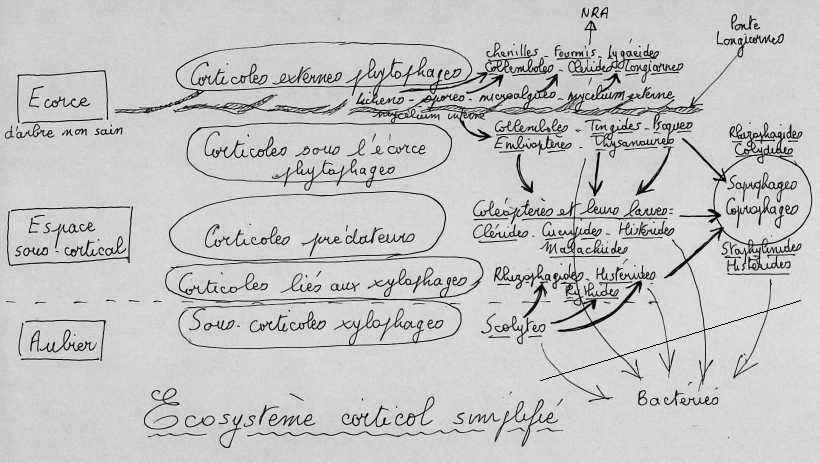 NRA
Ponte
Longicornes
chenilles - Fourmis - Lygaéides
Corticoles externes phytophages
Collemboles - Clérides - Longicornes
Ecorce
d'arbre non sain
lichens - spores - microalgues - mycelium externe
mycelium interne
Collemboles - Tingides - Psoques
Embioptères - Thysanoures
Corticoles sous l'écorce
phytophages
Rhizophagides
Colydides
Saprophages
Coprophages
Espace
sous-cortical
Corticoles prédateurs
Coléoptères et leurs larves:
Clérides - Cucujides - Histérides
Malachiides
Staphylinides
Histérides
Corticoles liés aux xylophages
Rhizophagides - Histérides
Rythides
Aubier
Sous-corticoles xylophages
Scolytes
Bactéries
Ecosystème corticol simplifié